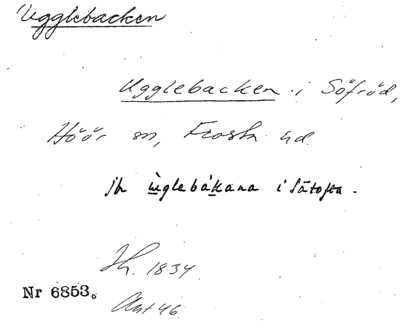 Ugglebacken
Ugglebacken i Söfröd,
Höör sn, Frosta hd.
jh ùglebákana i Sätofta.
Jh. 1834
Nr 6853.
Akt 46